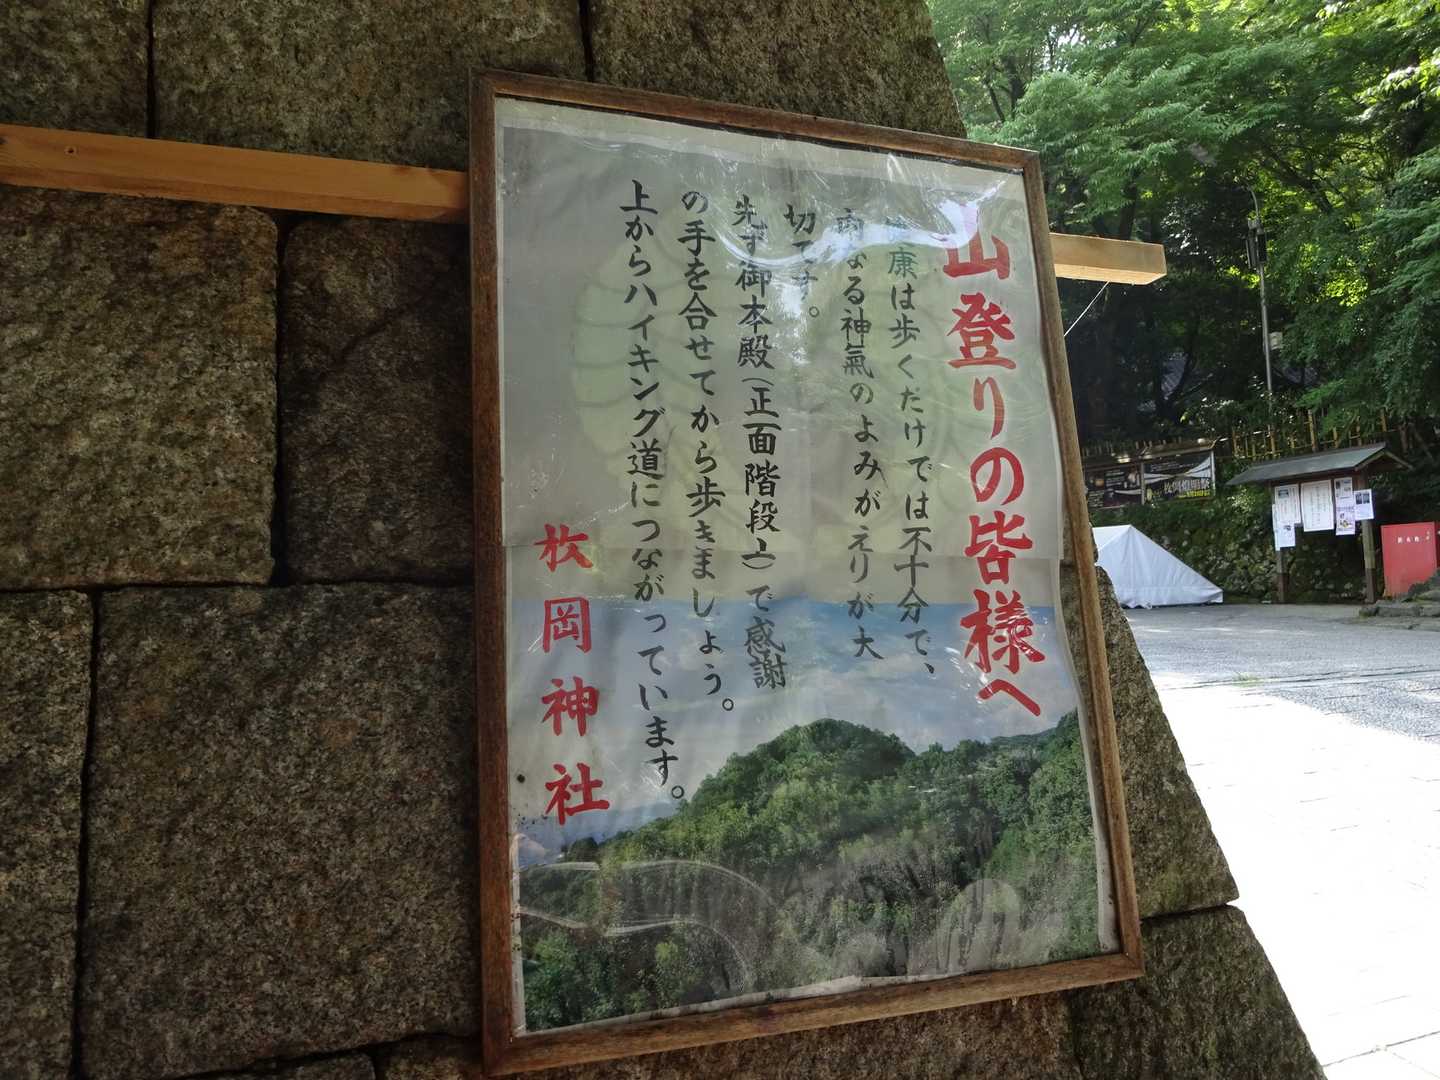 山登りの皆様へ
健康は歩くだけでは不十分で、
内なる神氣のよみがえりが大
切です。
先ず御本殿(正面階段上)で感謝
の手を合せてから歩きましょう。
上からハイキング道につながっています。
枚岡神社